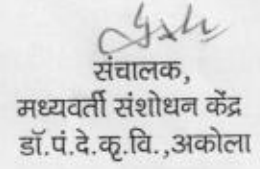 संचालक,
मध्यवर्ती संशोधन केंद्र
डॉ.पं.दे.कृ.वि.,अकोला